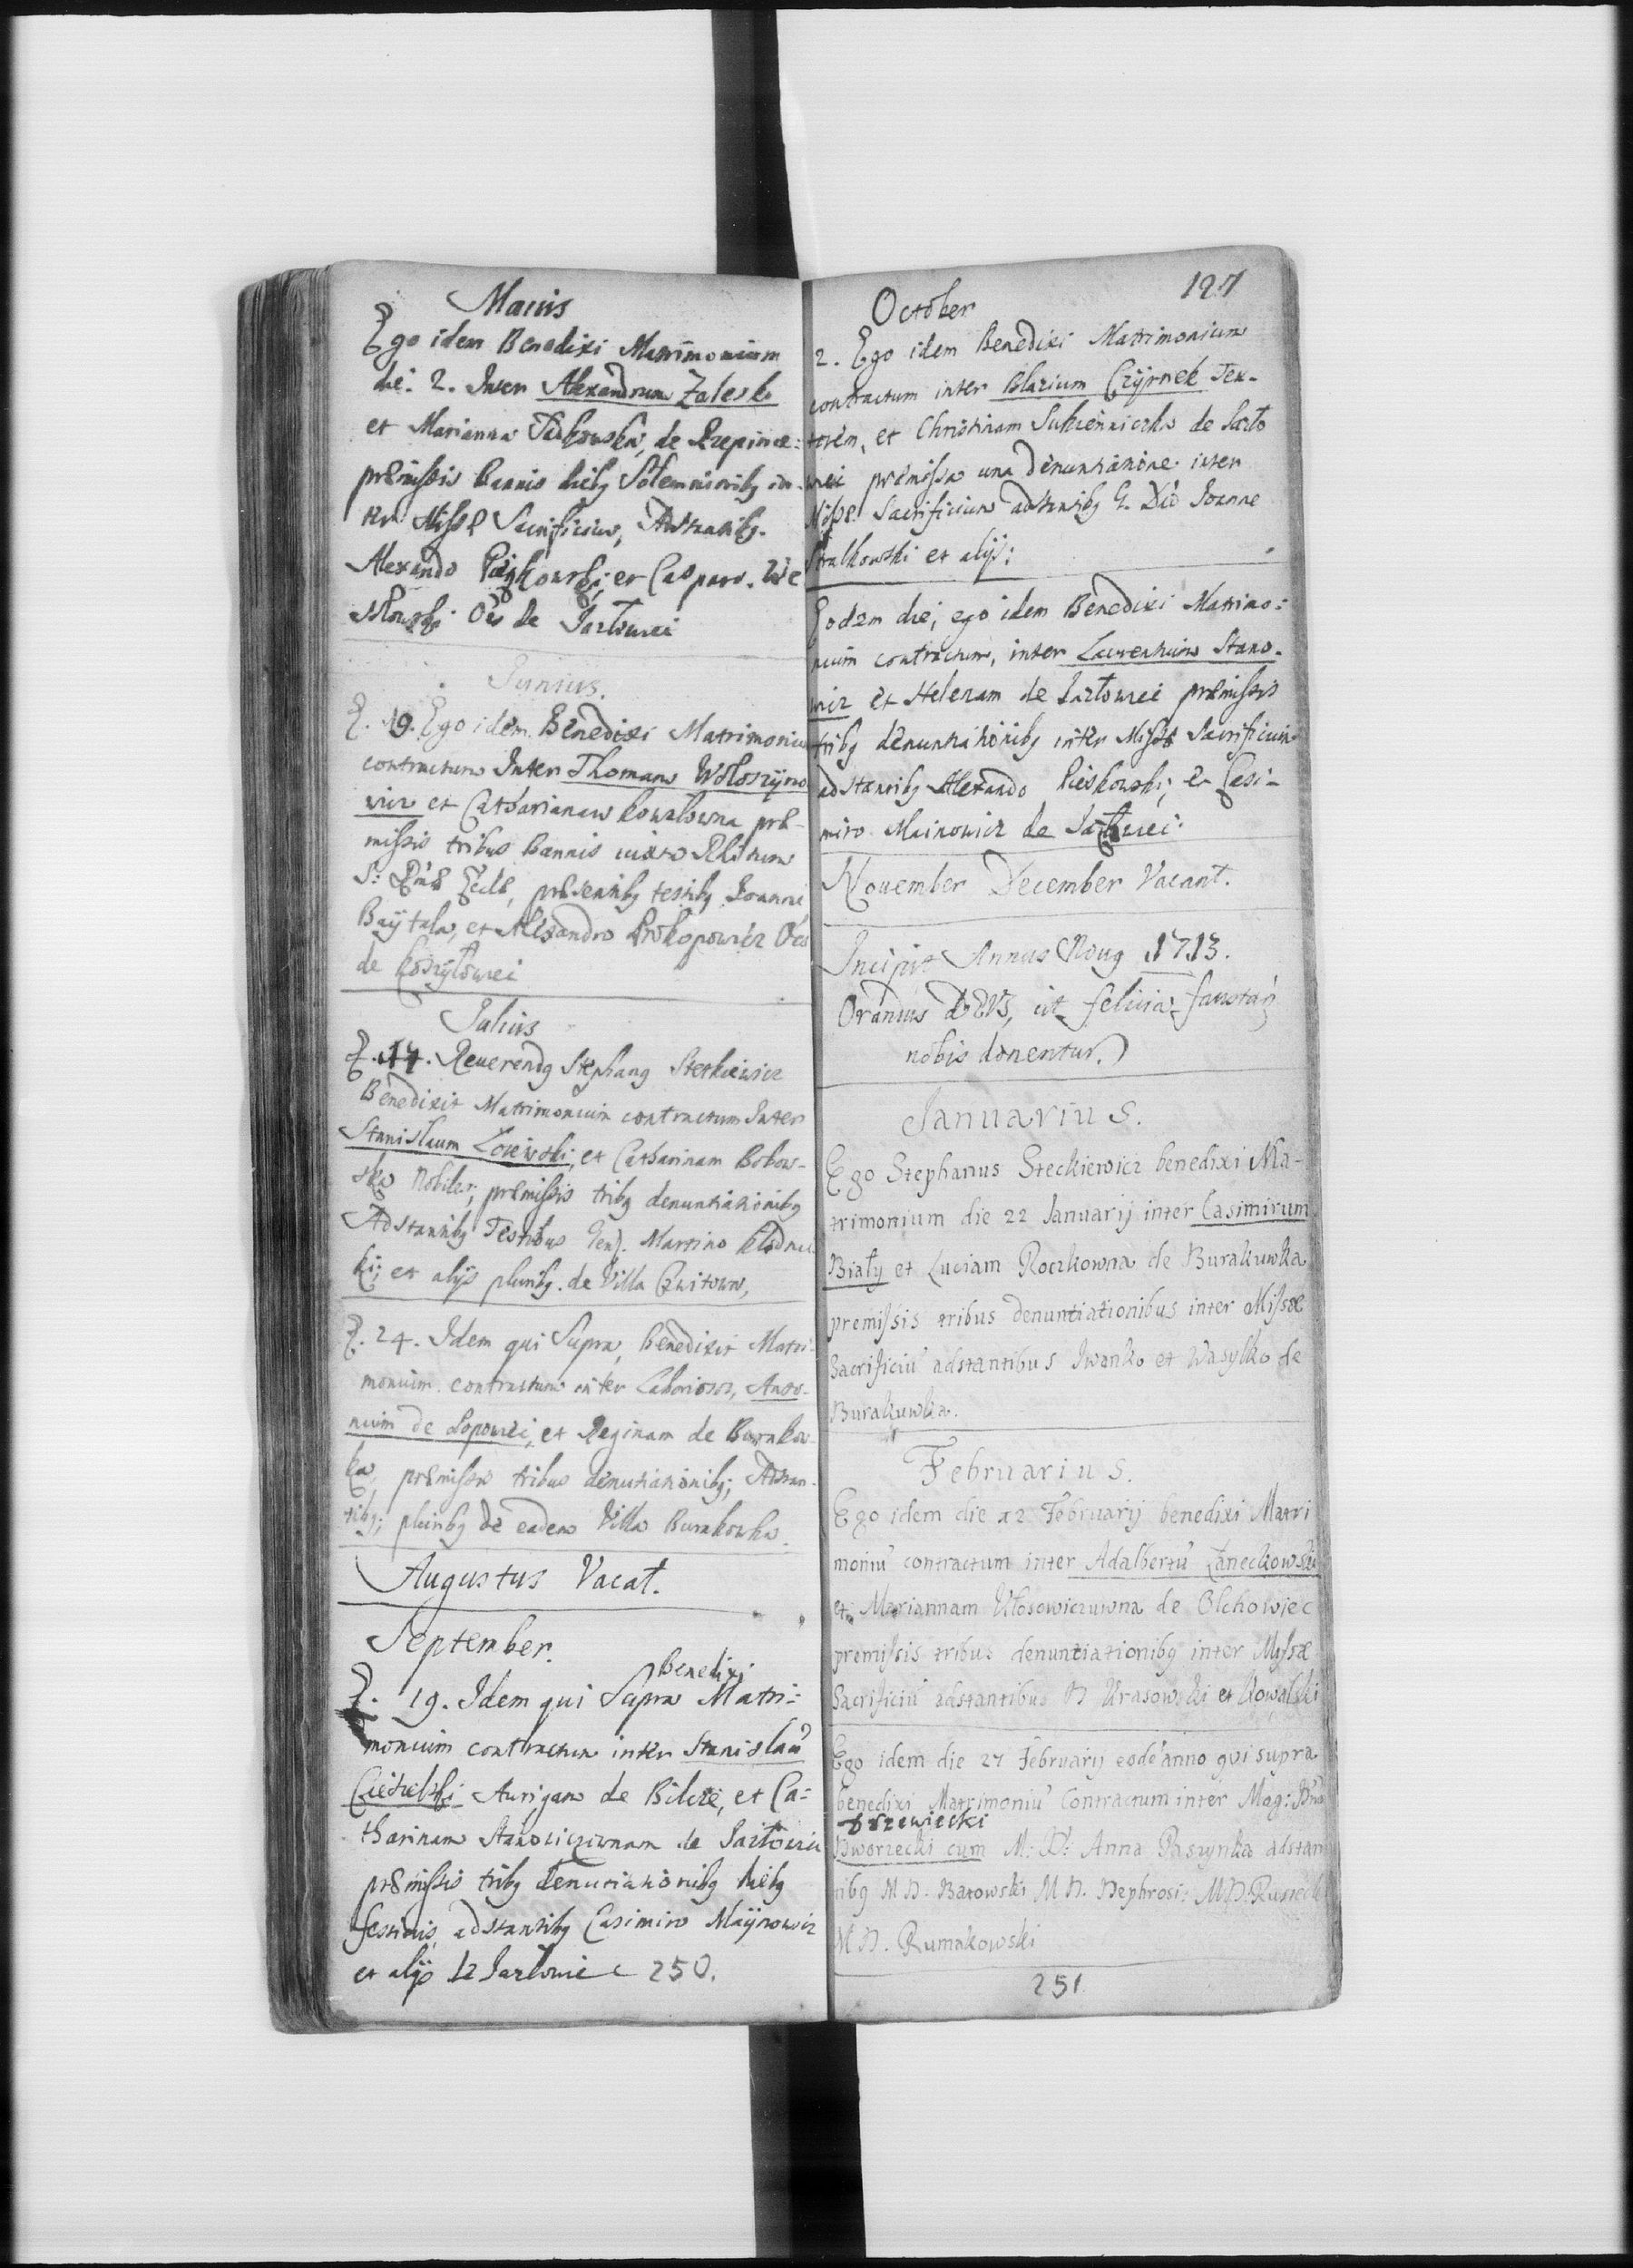 Maius
Ego idem Benedixi Matrimonium
die. 2. Inter Alexandrum Zalesk
et Marianna de
præmissis Bannis diebꝯ Solemnioribꝯ in-
ter Missæ Sacrificium, Adstantibꝯ
Alexandro et Casparo
de Jazłowei
Junius.
19. Ego idem Benedixi Matrimoniu
contractum Inter Thomam Wołoszÿno
wicz et Catharianam præ-
missis tribus Bannis iuxta Rhitum
S: præsentibꝯ testibꝯ Joanne
Baÿtala, et Alexandro Prokopowicz
de
Julius
Reuerendꝯ Stephanꝯ
Benedixit Matrimonium contractum Inter
Stanislaum et Catharinam Bobow-
Nobiles; præmissis tribꝯ denuntiationibꝯ
Adstantibꝯ Testibus Martino
ki; et alijs pluribꝯ. de Villa
24. Idem qui Supra, Benedixit Matri-
monium contractum inter Laboriosos, Anto-
nium de et Reginam de Burakow
ka, præmissis tribus denuntiationibꝯ; Adstan-
tibꝯ; pluribꝯ de eadem Villa Burakowka
Augustus Vacat.
September.
Benedixi
19. Idem qui Supra Matri=
monium contractum inter Stanislaū
Aurigam de Bilcze, et Ca=
tharinam de
præmissis tribꝯ denuntiationibꝯ diebꝯ
festiuis, adstantibꝯ Casimiro Maÿnowicz
et alijs 250.
127
October
2. Ego idem Benedixi Matrimonium
contractum inter Blazium Czÿrnek Tex-
torem, et Christinam de Jazło
wei præmissa una denuntiatione inter
Missæ Sacrificium adstantibꝯ G. Joanne
et alijs:
Eodem die, ego idem Benedixi Matrimo=
nium contractum, inter Laurentium Stano-
wicz et Helenam de Jazłowei præmissis
tribꝯ denuntiationibꝯ inter Missæ Sacrificium
adstantibꝯ Alexandro Pieskowski, et Casi-
miro Mainowicz de Jazłowei.
Nouember December Vacant.
Incipit Annus Nouꝯ 1713.
Orandus DEVS, ut felicia, fausta
nobis donentur.
Januarius.
Ego Stephanus Steckiewicz benedixi Ma-
trimonium die 22 Januarij inter Casimirum
Biały et Luciam Roczkowna de Burakuwka
premissis tribus denuntiationibus inter Missæ
Sacrificiū adstantibus Iwanko et Wasylko de
Burakuwka.
Februarius.
Ego idem die 12 Februarij benedixi Matri
moniū contractum inter Adalbertū
et Mariannam de Olchowiec
premissis tribus denuntiationibꝯ inter Missæ
Sacrificiū adstantibus D et Kowalski
Ego idem die 27 Februarij eodē anno qui supra
benedixi Matrimoniū Contractum inter Mag:
Drzewiecki
Dworzecki cum M: D: Anna adstan
tibꝯ M D. Batowski M D. Nephrosi: M D.
M D. Rumakowski
251